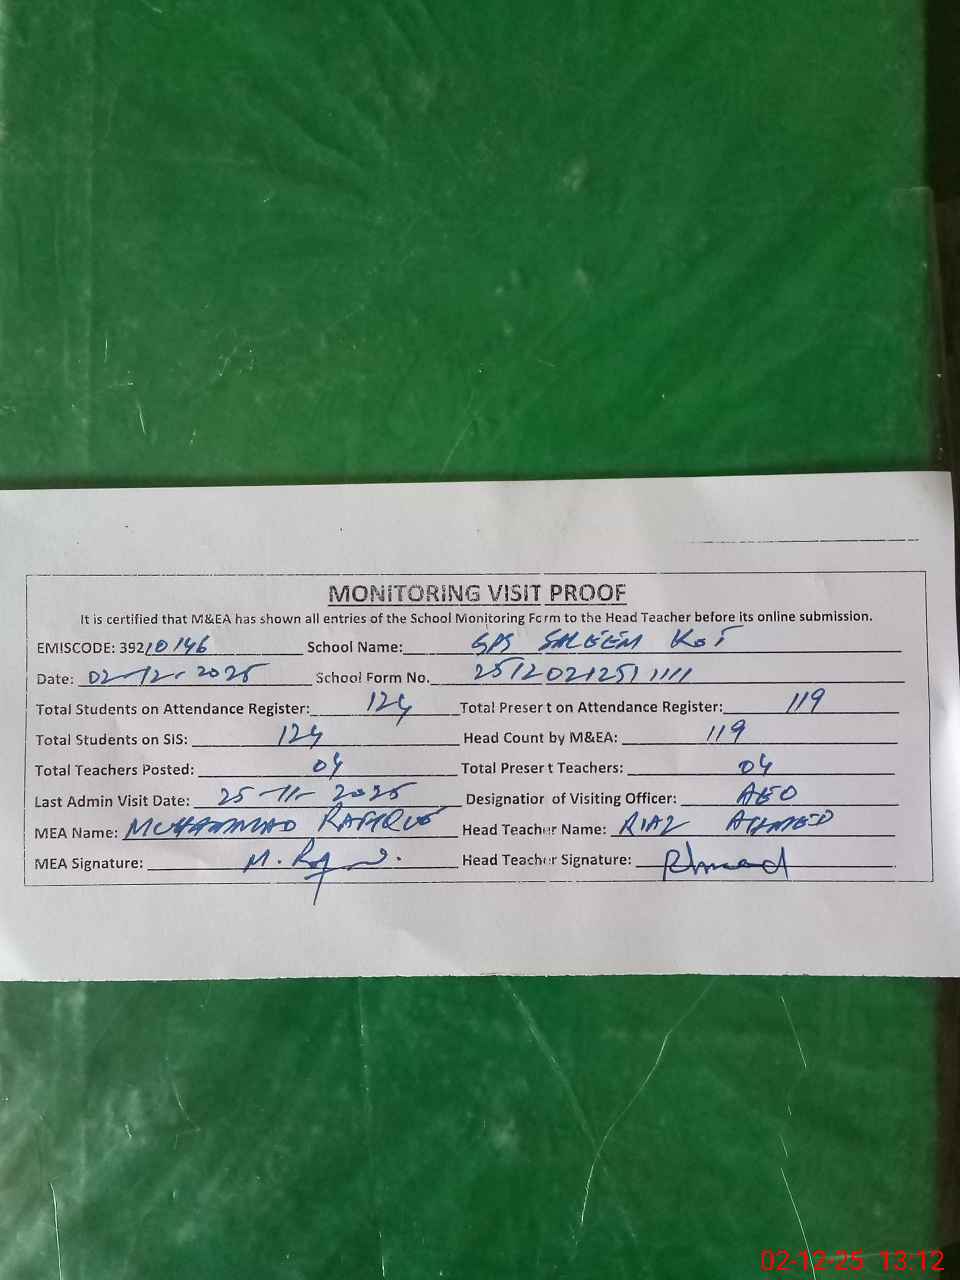 MONITORING VISIT PROOF
It is certified that M&EA has shown all entries of the School Monitoring Form to the Head Teacher before its online submission.
EMISCODE: 39210146 School Name: GPS SALEEM KOT
Date: 02-12-2025 School Form No. 2512021251 1111
Total Students on Attendance Register: 124 Total Present on Attendance Register: 119
Total Students on SIS: 124 Head Count by M&EA: 119
Total Teachers Posted: 04 Total Present Teachers: 04
Last Admin Visit Date: 25-11-2025 Designation of Visiting Officer: AEO
MEA Name: MUHAMMAD RAFIQUE Head Teacher Name: RIAZ AHMED
MEA Signature: Head Teacher Signature:
02-12-25 13:12